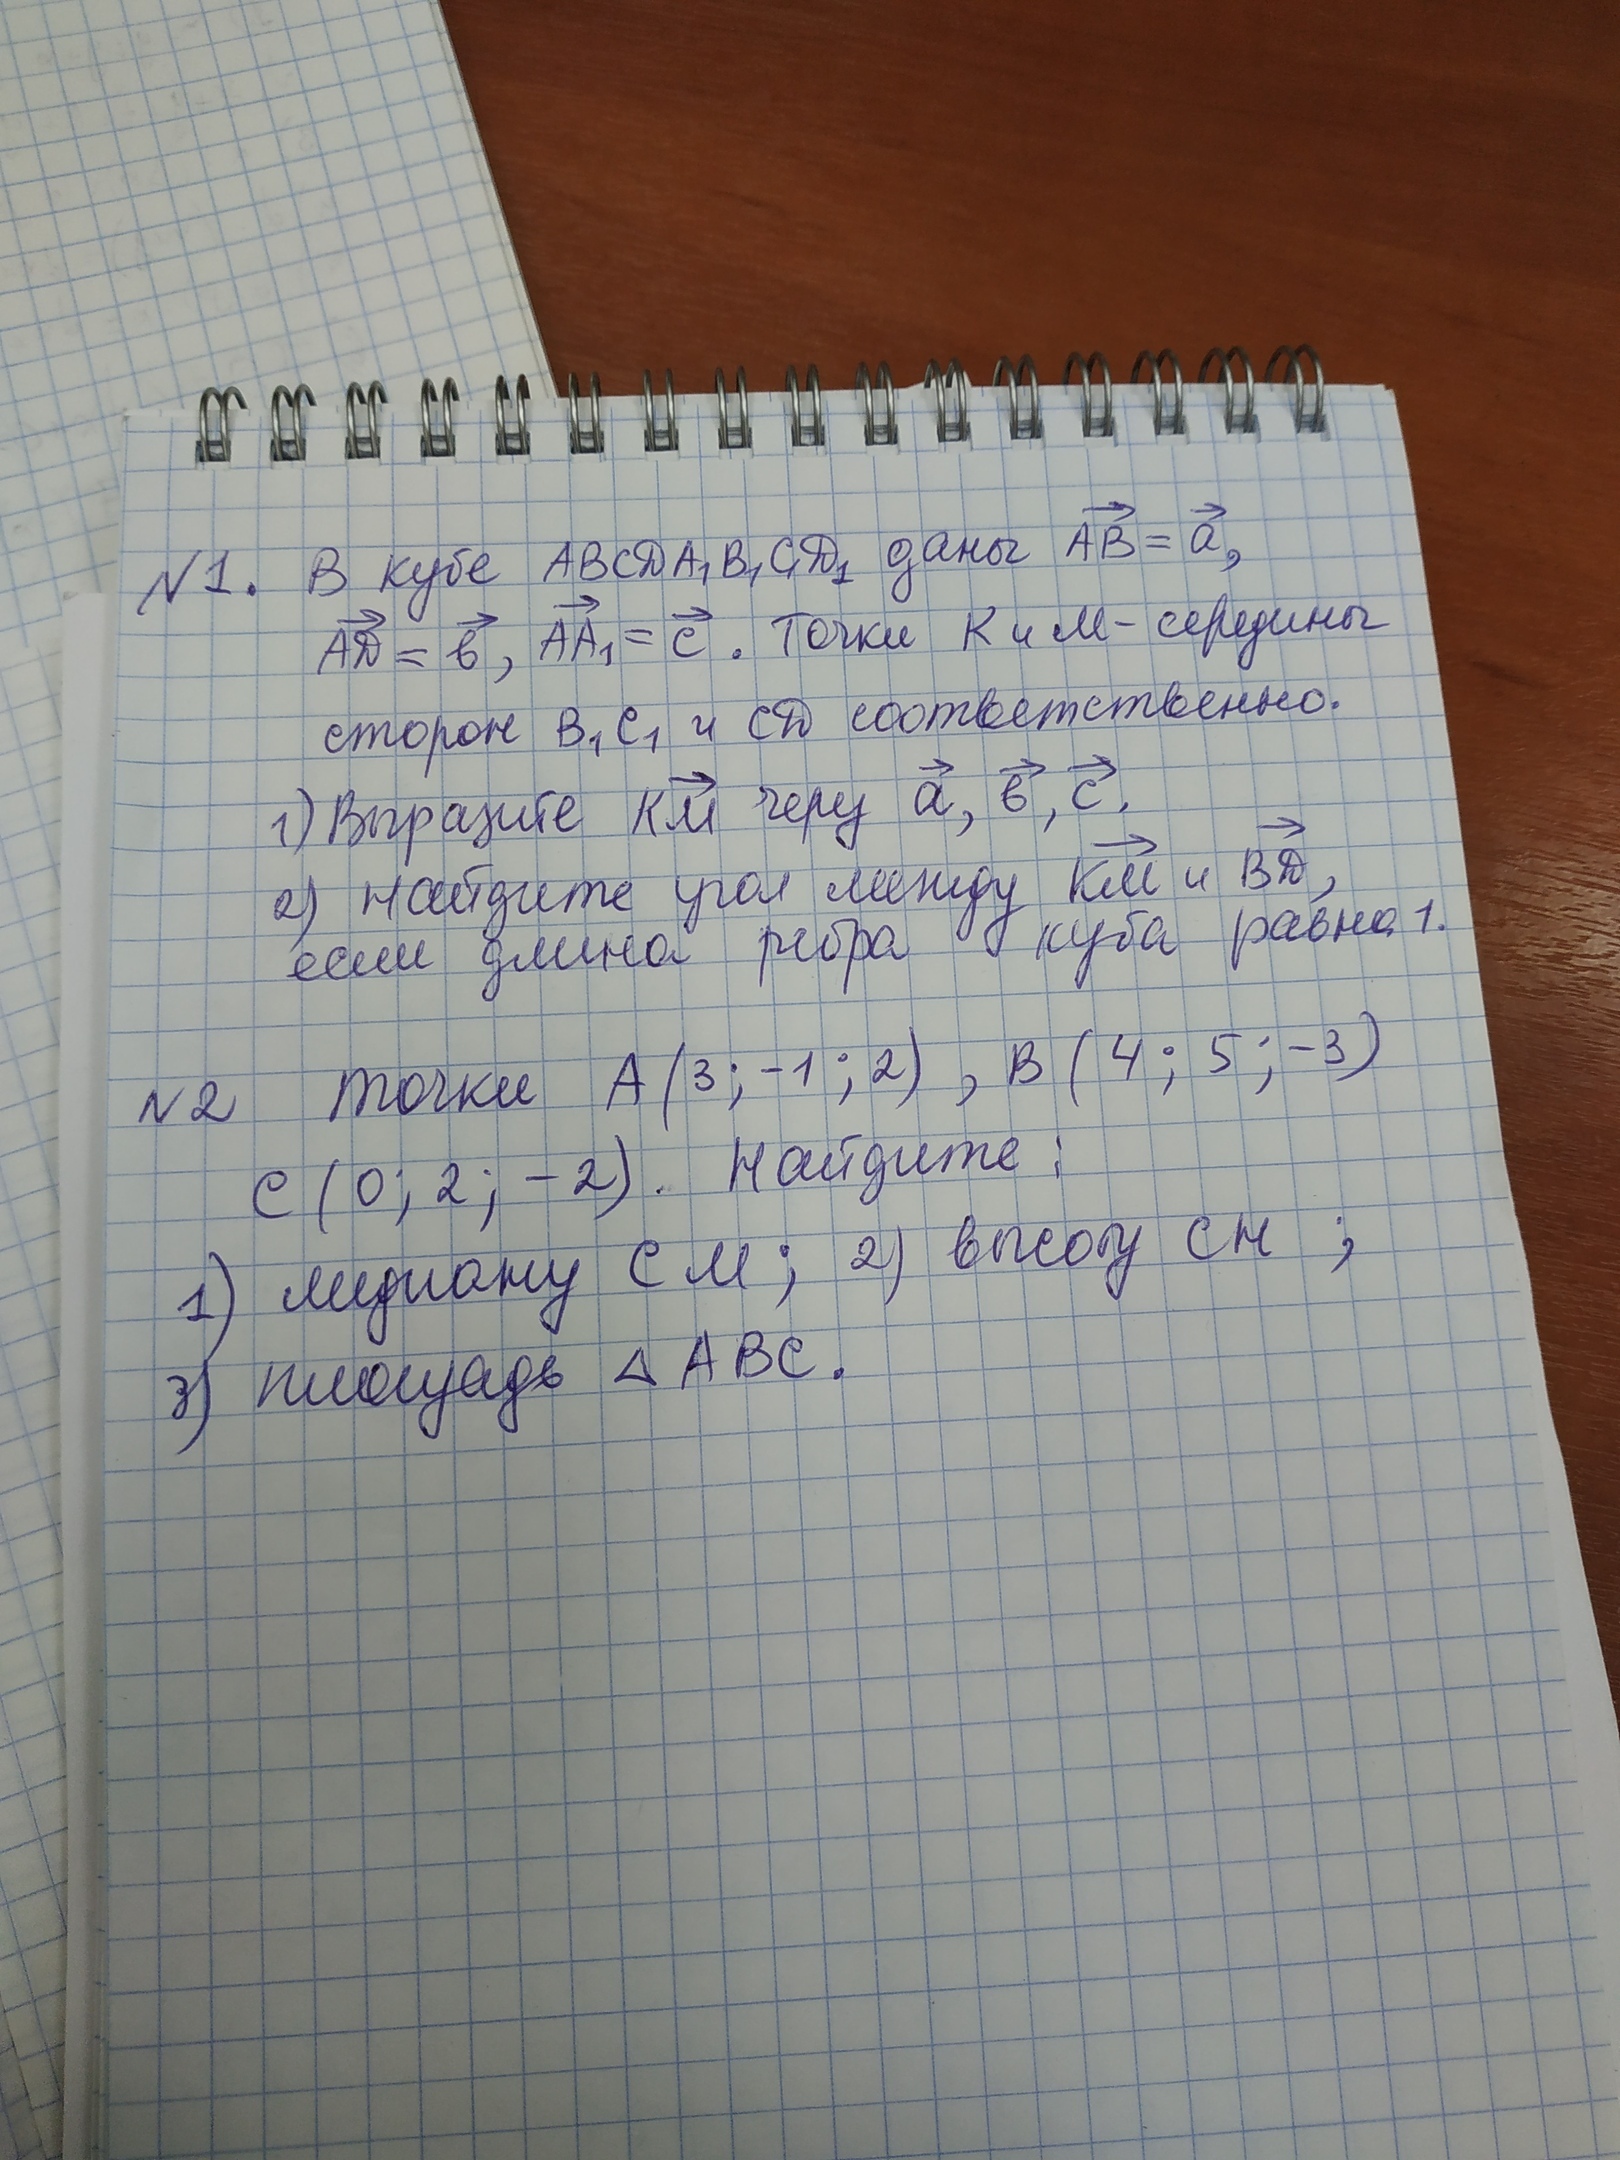 N1. В кубе ABCDA₁B₁C₁D₁ даны AB = a,
AD = в, AA₁ = c. Точки К и М - середины
сторон B₁C₁ и CD соответственно.
1) Выразите KM через a, в, c.
2) Найдите угол между KM и BD,
если длина ребра куба равна 1.
N2 Точки A(3; -1; 2), B(4; 5; -3)
C(0; 2; -2). Найдите:
1) медиану CM; 2) высоту CH;
3) площадь △ABC.